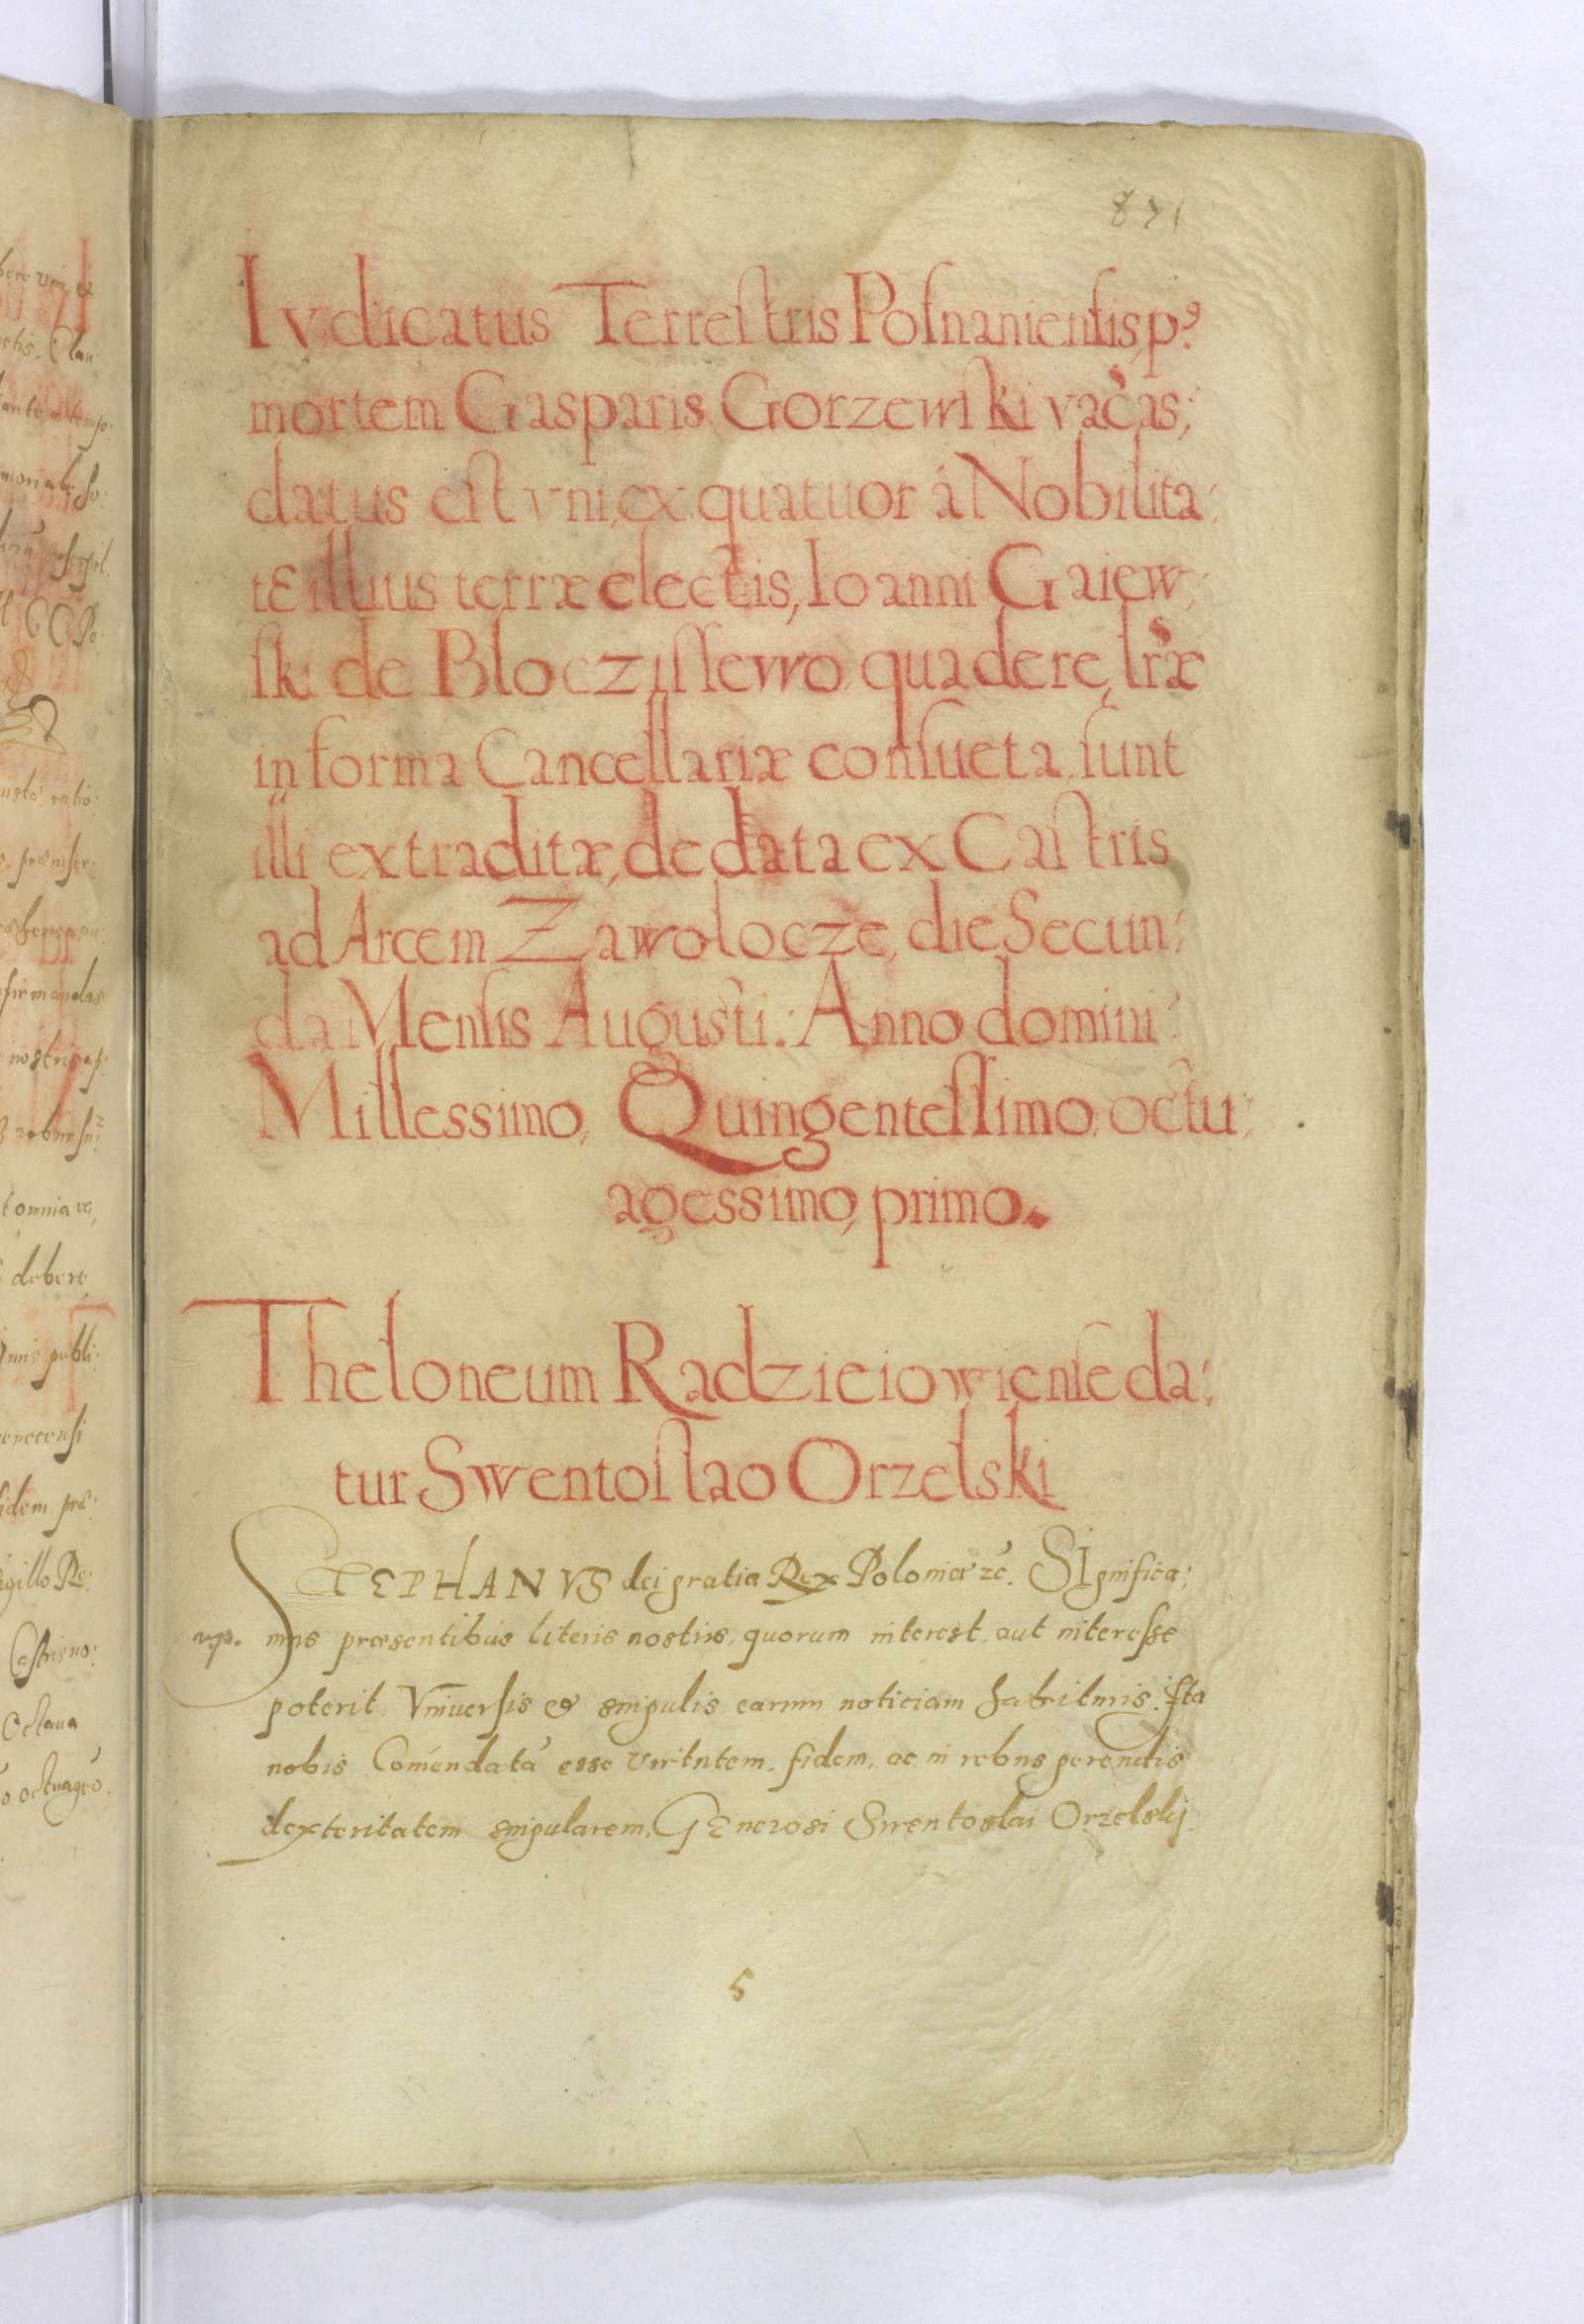 871
Iudicatus Terreſtris Poſnanienſis, p⁹
mortem Gasparis Gorzewſki vacãs;
datus eſt vni, ex quatuor á Nobilita:
te illius terræ electis, Ioanni Gaiew:
ſki de Blocziſſewo qua de re, lr̃æ
in forma Cancellariæ conſueta, ſunt
illi extraditæ, de data ex Caſtris
ad Arcem Zawolocze, die Secun:
da Menſis Augusti: Anno domini
Millessimo, Quingenteſſimo, octu:
agessimo, primo.
Theloneum Radzieiowienſe da:
tur Swentoſlao Orzelski
STEPHANVS dei gratia Rex Poloniæ zc̃. SIgnifica:
mus præsentibus literis nostris, quorum interest, aut intereſse
poterit. Vniuerſis & singulis earum noticiam habituris. Ita
nobis Com̃endatã esse virtutem, fidem, ac in rebus gerendis
dexteritatem singularem. GEnerosi Swentoslai Orzelskij
5